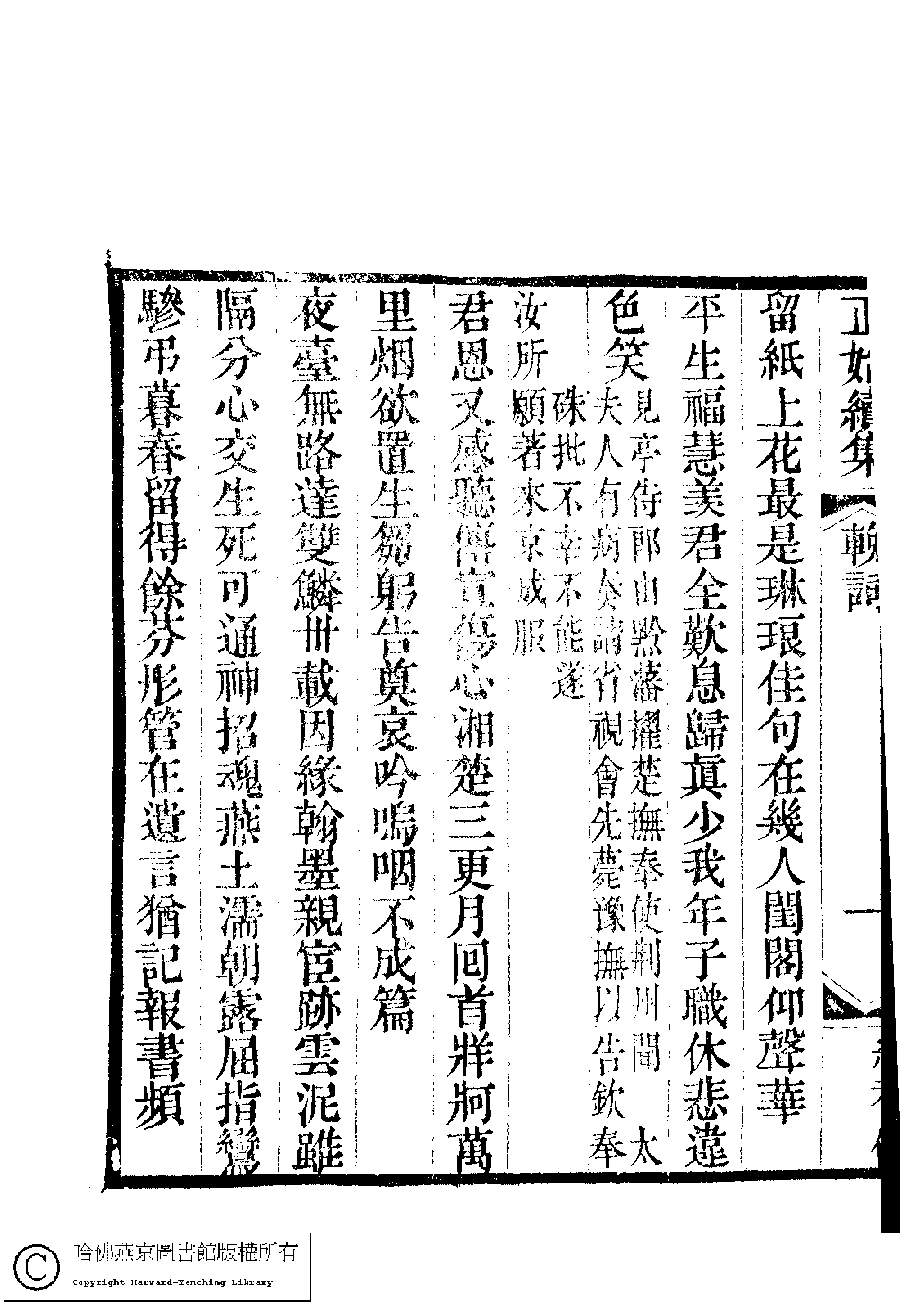 正始續集 輓詞 一
留紙上花最是琳琅佳句在幾人閨閣仰聲華
平生福慧羨君全歎息歸眞少我年子職休悲違
色笑
見亭侍郎由黔藩擢楚撫奉使荆州聞 太
夫人有病奏請省視會先薨豫撫以告欽奉
硃批不幸不能遂
汝所願著來京成服
君恩又感聽傳宣傷心湘楚三更月回首牂牁萬
里烟欲置生芻躬告奠哀吟嗚咽不成篇
夜臺無路達雙鱗卅載因緣翰墨親宦跡雲泥雖
隔分心交生死可通神招魂燕土濡朝露屈指鸞
驂弔暮春留得餘芬彤管在遺言猶記報書頻
哈佛燕京圖書館版權所有
Copyright Harvard-Yenching Library